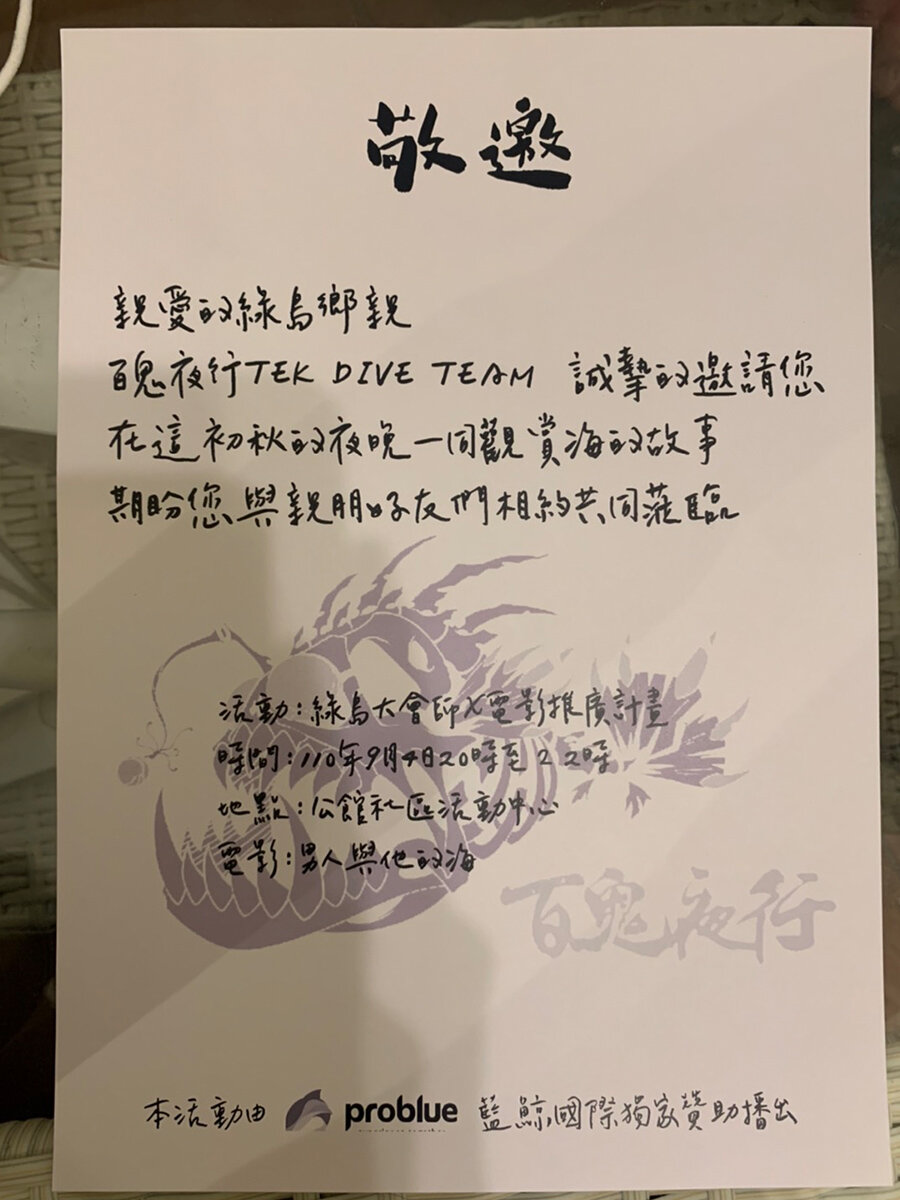 敬邀
親愛的綠島鄉親
百鬼夜行TEK DIVE TEAM 誠摯的邀請您
在這初秋的夜晚一同觀賞海的故事
期盼您與親朋好友們相約共同蒞臨
活動:綠島大會師X電影推廣計畫
時間:110年9月4日20時至22時
地點:公館社區活動中心
電影:男人與他的海
百鬼夜行
本活動由 problue 藍鯨國際獨家贊助播出